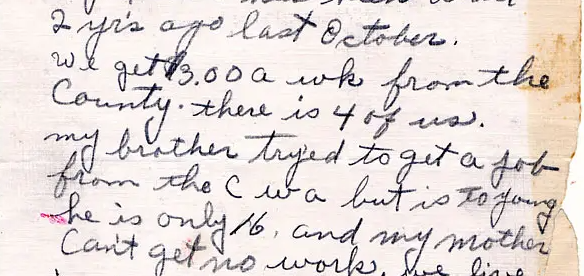 2 yrs ago last October.
we get $3.00 a wk from the
County. there is 4 of us.
my brother tryed to get a job
from the C w a but is to young
he is only 16, and my mother
Can't get no work. we live